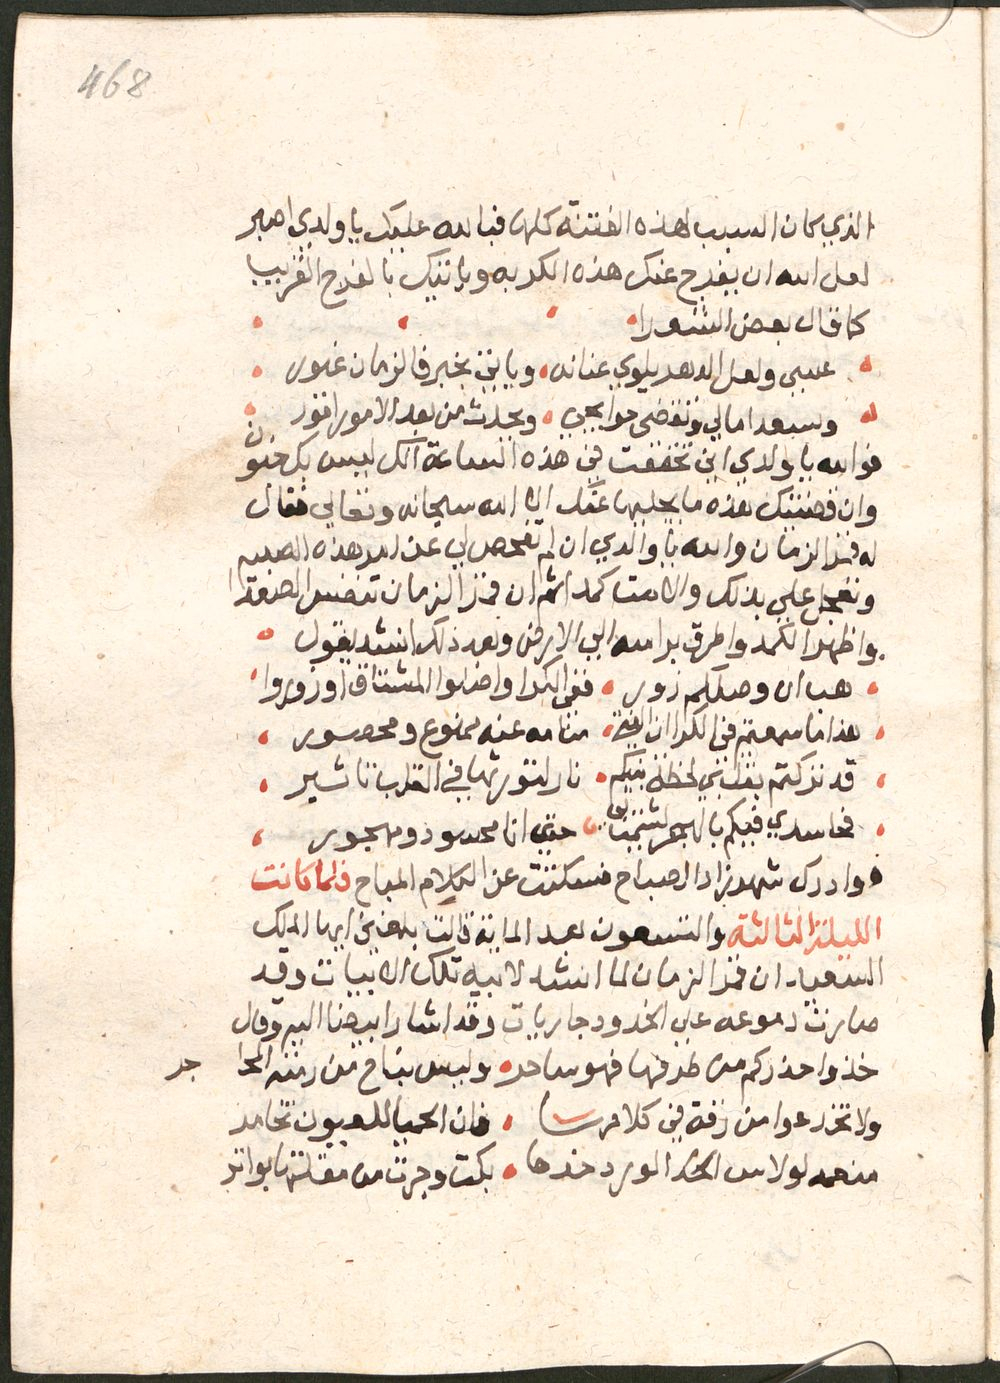 468
الذي كان السبب لهذه الفتنة كلها فبالله عليك يا ولدي اصبر
لعل الله ان يفرج عنك هذه الكربه وياتيك بالفرج القريب
كما قال بعض الشعرا
عسى ولعل الدهر يلوي عنانه وياتي بخير فالزمان غيور
وسعد امالي وتقضى حوايجي وتحدث من بعد الامور امور
فوالله يا ولدي اني تحققت في هذه الساعة انك ليس بك جنون
وان قضيتك هذه ما يجليها عنك الا الله سبحانه وتعالى فقال
له قمر الزمان والله يا والدي ان لم تفحص لي عن امر هذه الصبيه
وتعجل علي بذلك والا مت كمدا ثم ان قمر الزمان تنفس الصعدا
واظهر الكمد واطرق براسه الى الارض وبعد ذلك انشد يقول
هب ان وصلكم زور ففي الكرا واصلوا المشتاق او زوروا
هذا ما سمعتم في الكرا ان الفتى منامه عنه ممنوع ومحصور
قد تركتم بقلبي لحظة بينكم نار لتوريثها في القلب تاثير
فحاسدي فيكم بالهجر لشمتنا حتى انا محسود ومهجور
وادرك شهرزاد الصباح فسكتت عن الكلام المباح فلما كانت
الليلة الثالثة والتسعون بعد الماية قالت بلغني ايها الملك
السعيد ان قمر الزمان لما انشد لابيه تلك الابيات وقد
صارت دموعه على الخدود جاريات وقد اشار ايضا اليه وقال
خذوا حذركم من طرفها فهو ساحر وليس بناج من رمته المحاجر
ولا تخدعوا من رقة في كلامها فان الحميا للعيون تخامر
منعمه لو لامس الخد الورد خدها بكت وجرت من مقلتها بواتر